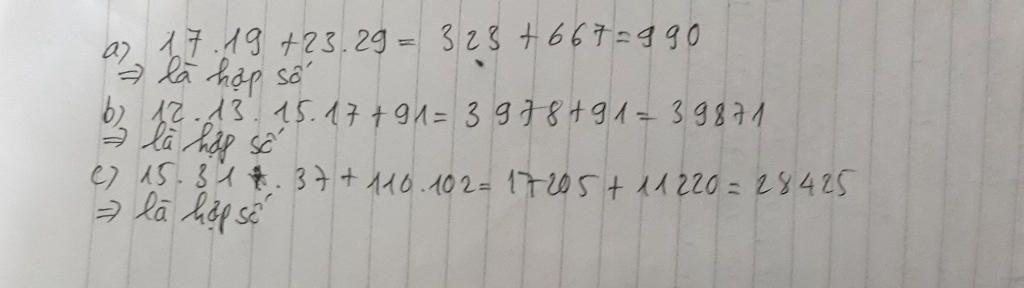 a) 17.19 + 23.29 = 323 + 667 = 990
⇒ là hợp số
b) 12.13.15.17 + 91 = 3978 + 91 = 39871
⇒ là hợp số
c) 15.31.37 + 110.102 = 17205 + 11220 = 28425
⇒ là hợp số